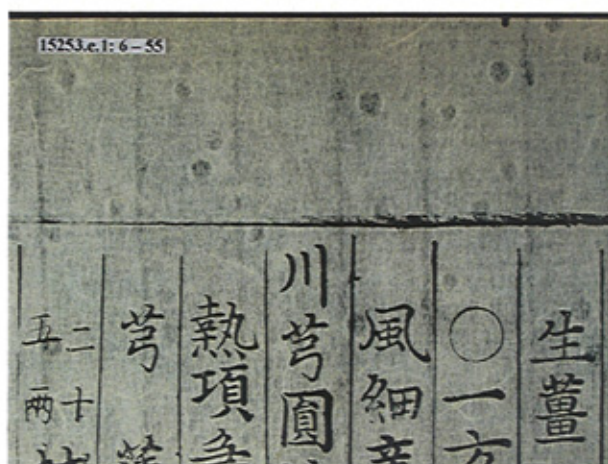 15253.e.1: 6 – 55
生薑
〇一方
風細辛
川芎圓
熱項急
芎
二十
五兩